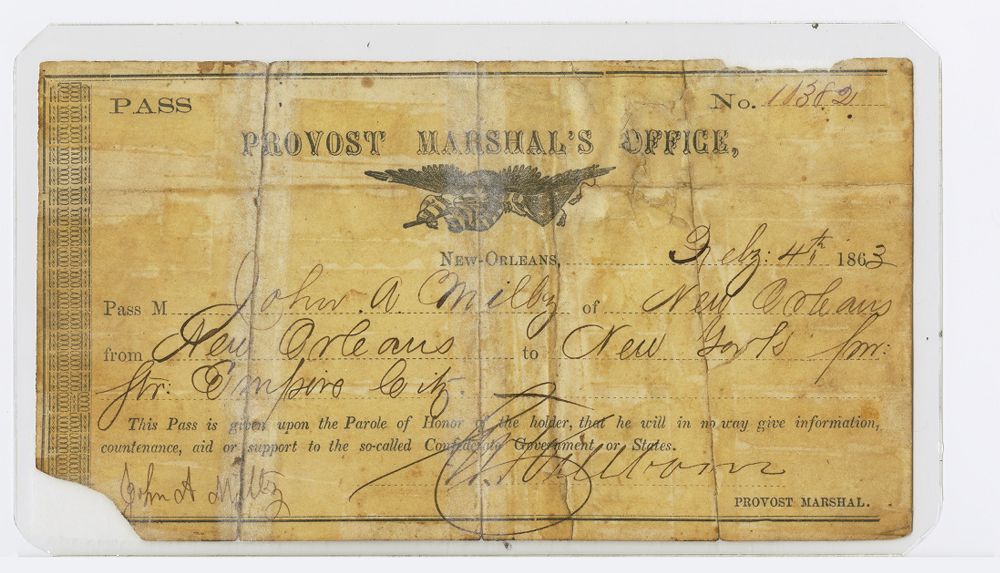 PASS No. 11382
PROVOST MARSHAL'S OFFICE,
NEW-ORLEANS, Feby: 4th 1863
Pass M John. A. Milby of New Orleans
from New Orleans to New York pr:
Str: Empire City.
This Pass is given upon the Parole of Honor of the holder, that he will in no way give information,
countenance, aid or support to the so-called Confederate Government or States.
John A Milby
PROVOST MARSHAL.